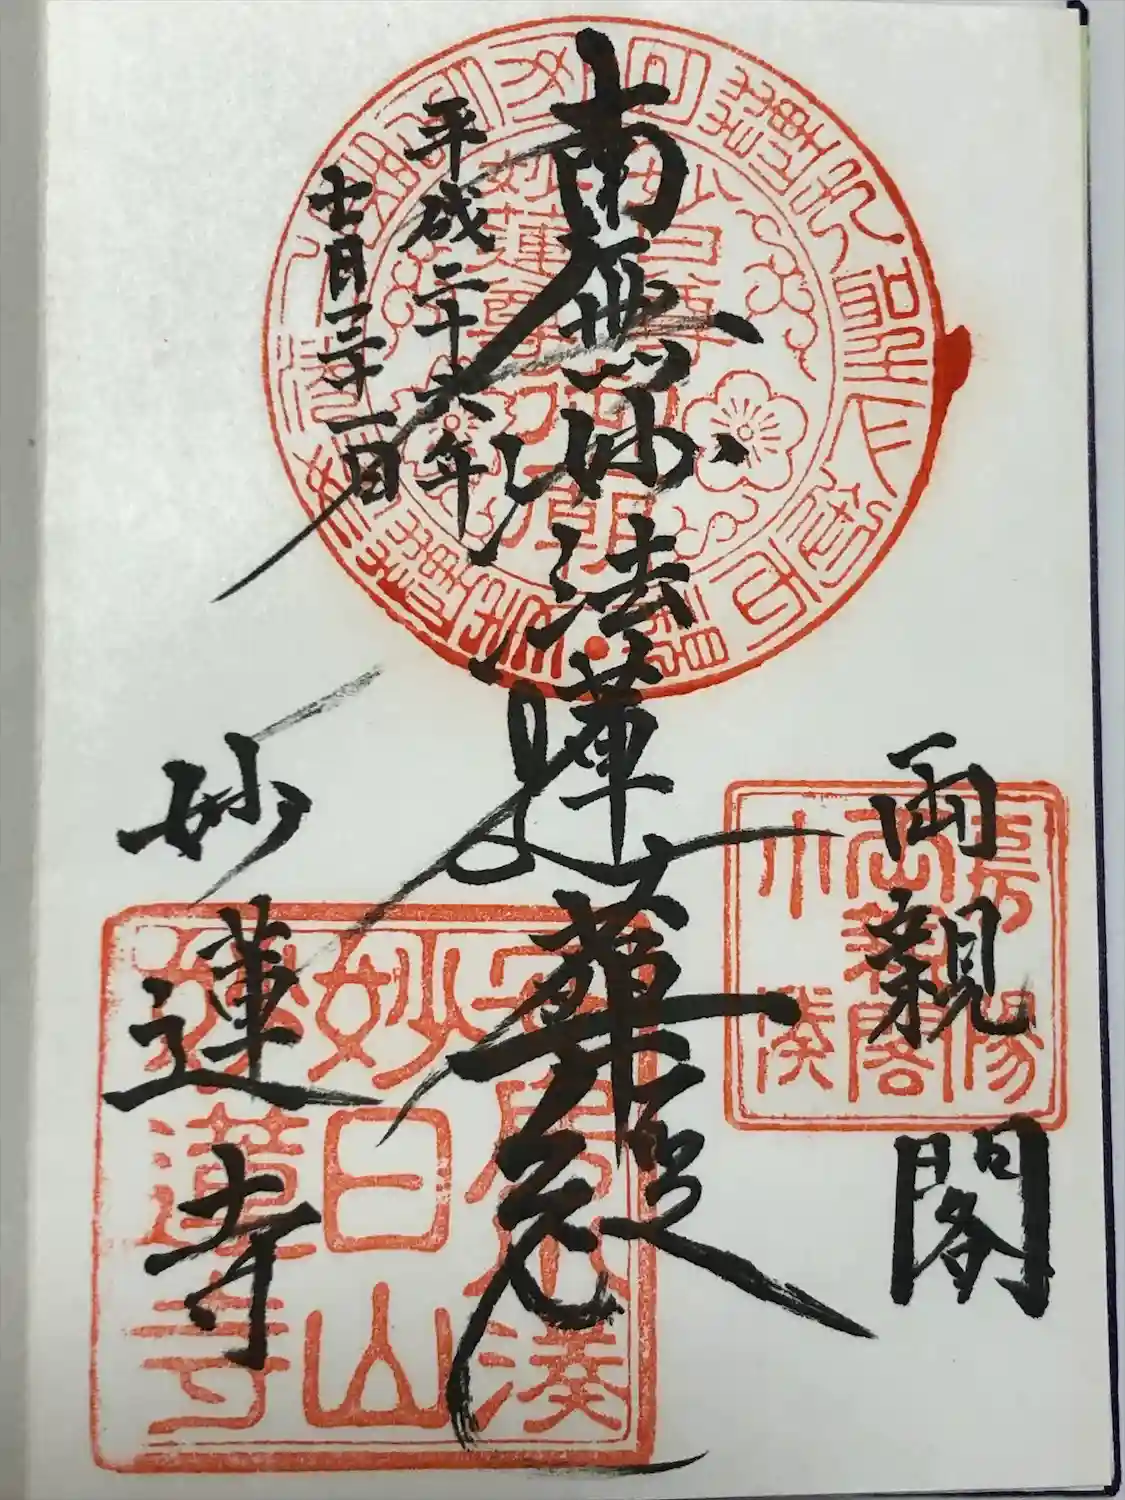 両親閣
南無妙法蓮華経
平成二十六年
七月三十一日
妙蓮寺
妙日尊
妙蓮尊
御廟
房陽
両親閣
小湊
安房小湊
妙日山
妙蓮寺